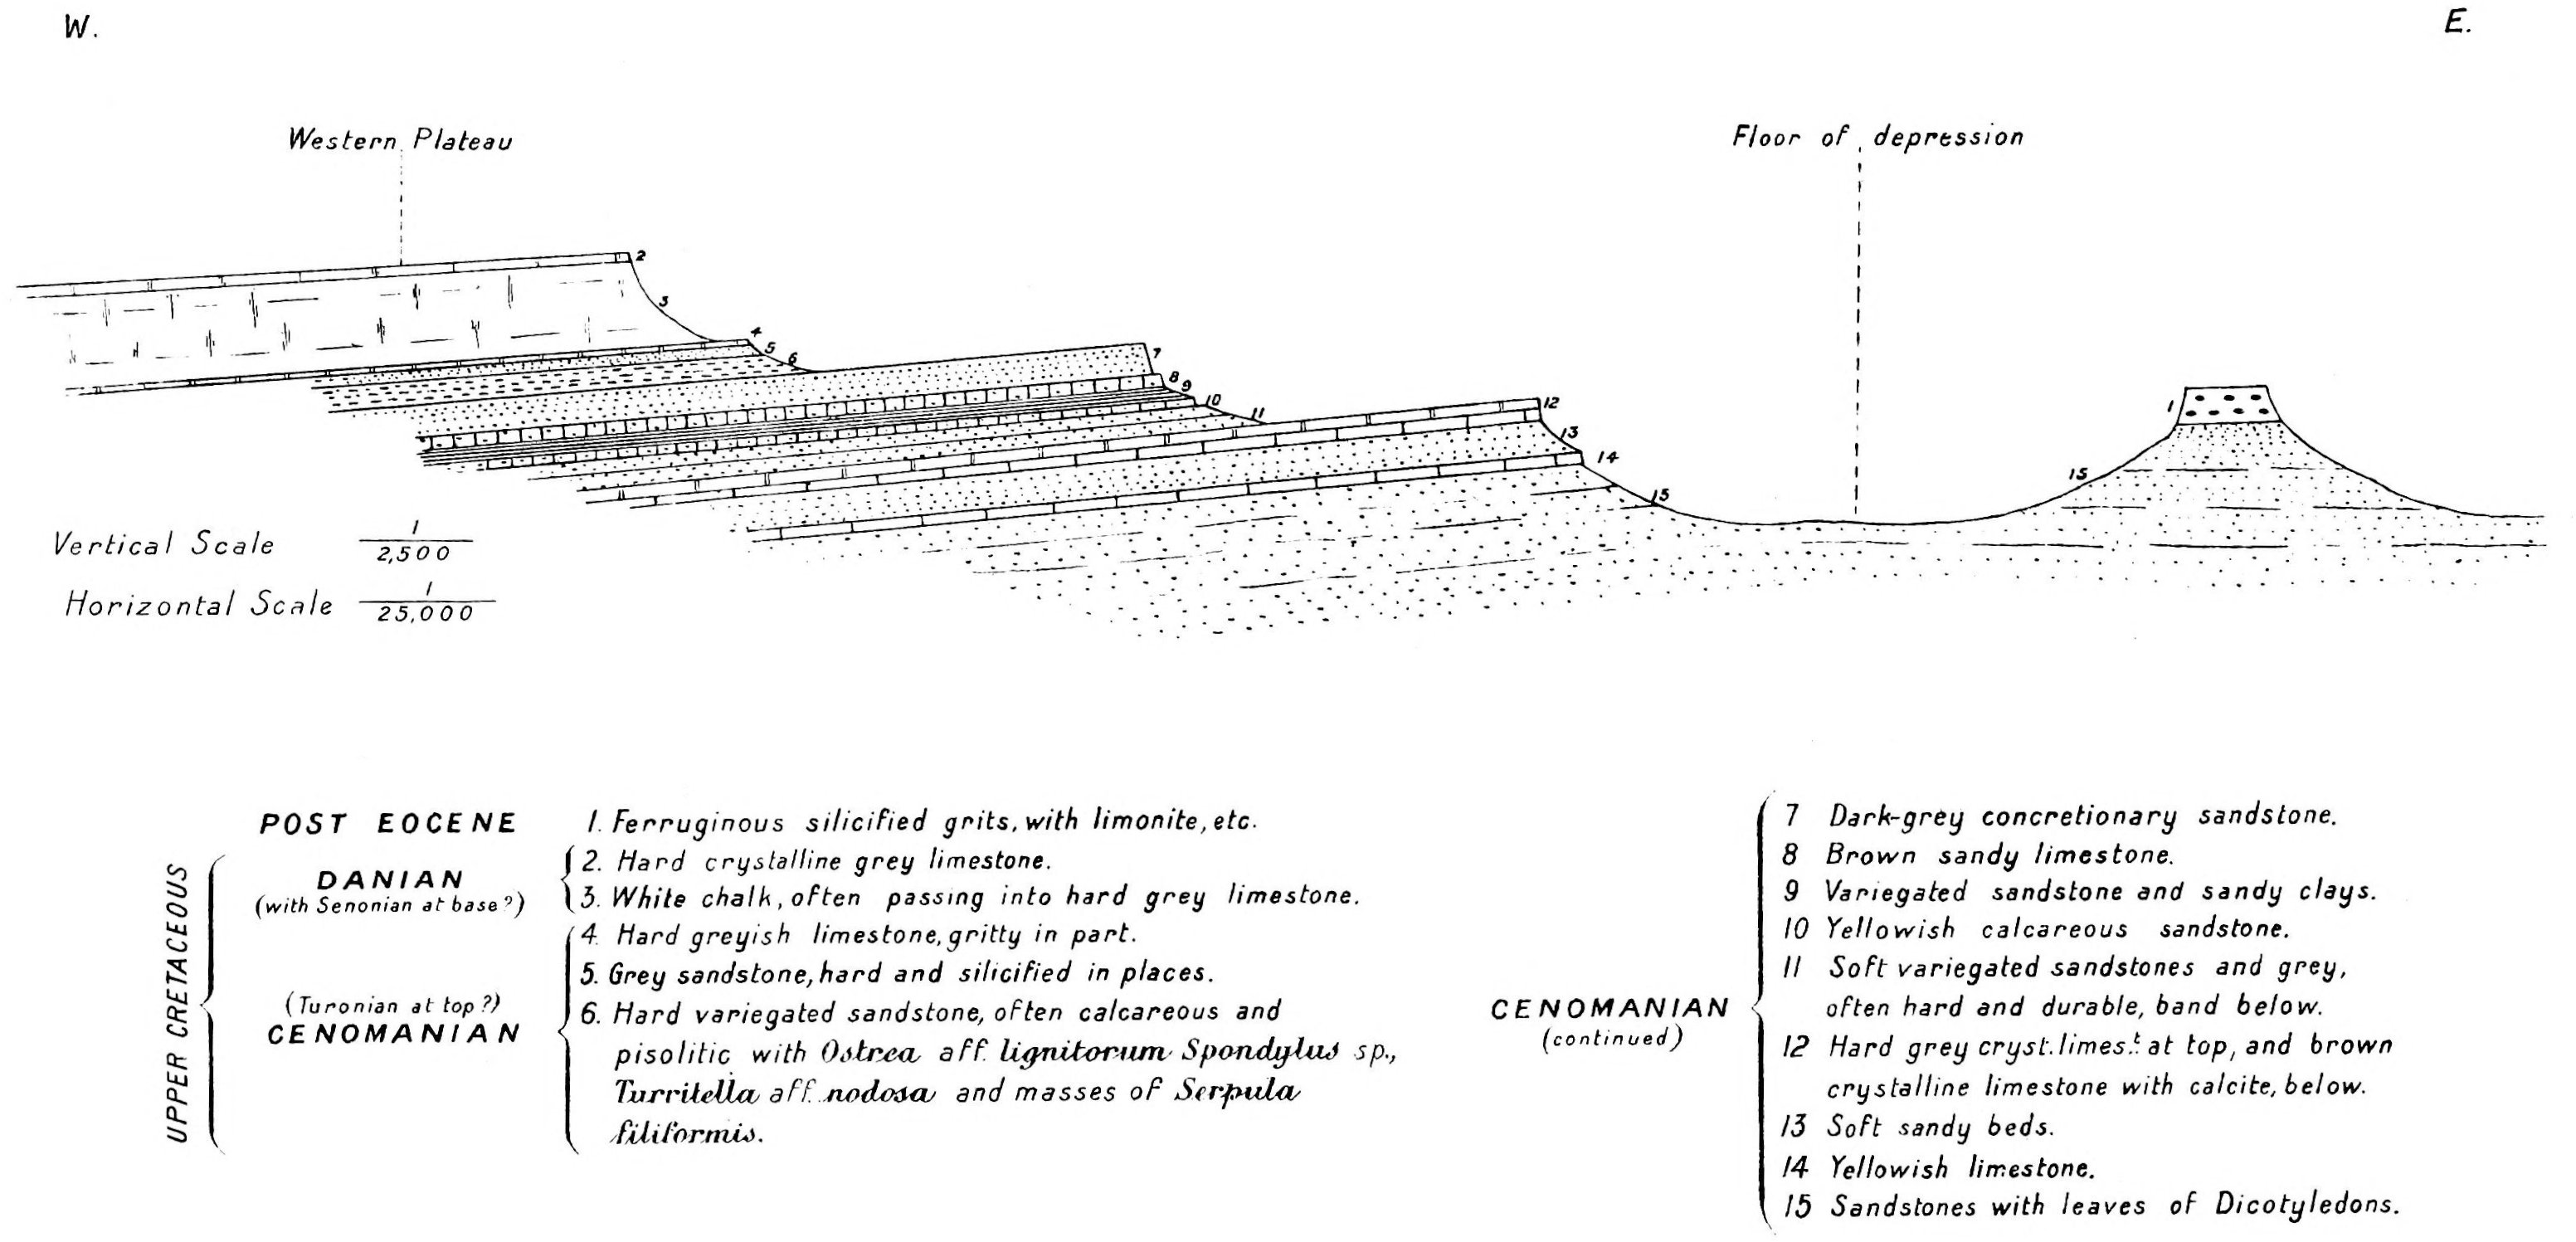 W.
E.
Western Plateau
Floor of depression
2
3
4
5
6
7
8
9
10
11
12
13
14
15
1
15
Vertical Scale 1/2,500
Horizontal Scale 1/25,000
UPPER CRETACEOUS
POST EOCENE
DANIAN
(with Senonian at base?)
(Turonian at top?)
CENOMANIAN
1. Ferruginous silicified grits, with limonite, etc.
2. Hard crystalline grey limestone.
3. White chalk, often passing into hard grey limestone.
4. Hard greyish limestone, gritty in part.
5. Grey sandstone, hard and silicified in places.
6. Hard variegated sandstone, often calcareous and
pisolitic with Ostrea aff. lignitorum Spondylus sp.,
Turritella aff. nodosa and masses of Serpula
filiformis.
CENOMANIAN
(continued)
7 Dark-grey concretionary sandstone.
8 Brown sandy limestone.
9 Variegated sandstone and sandy clays.
10 Yellowish calcareous sandstone.
11 Soft variegated sandstones and grey,
often hard and durable, band below.
12 Hard grey cryst. limes.t at top, and brown
crystalline limestone with calcite, below.
13 Soft sandy beds.
14 Yellowish limestone.
15 Sandstones with leaves of Dicotyledons.